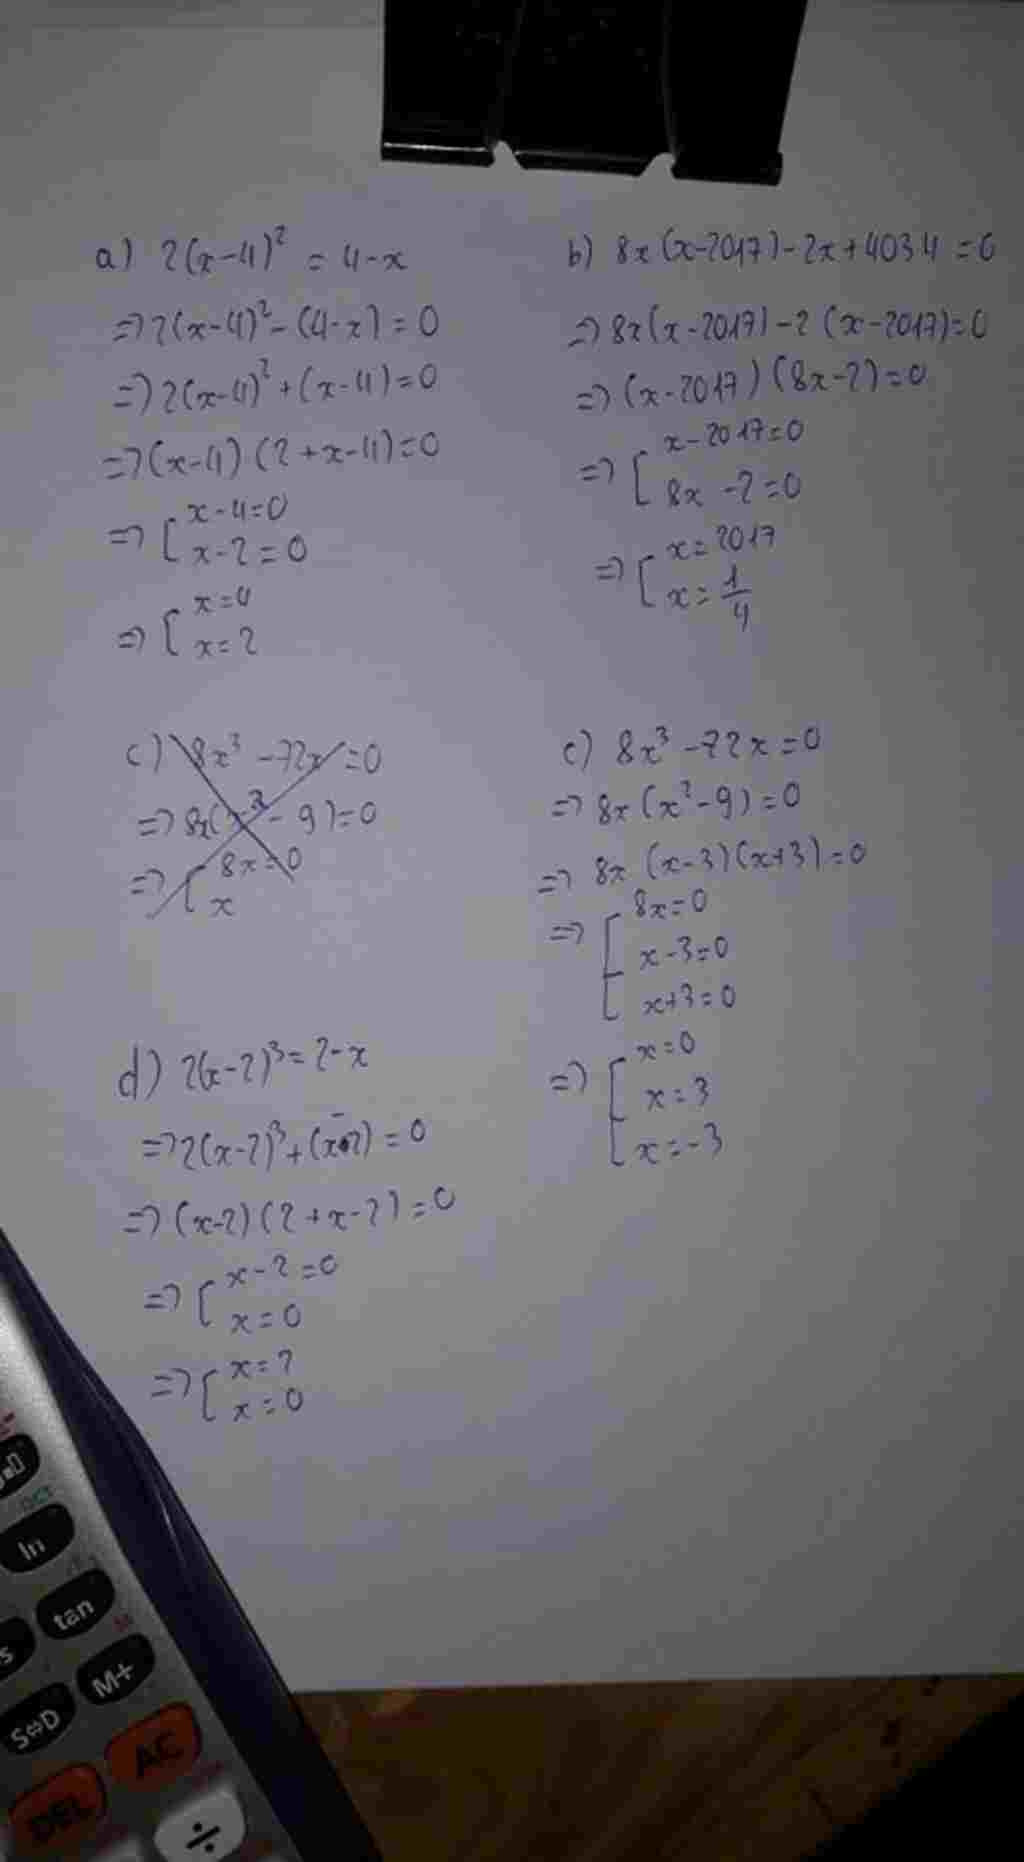 a) 2(x-4)² = 4-x
=> 2(x-4)² - (4-x) = 0
=> 2(x-4)² + (x-4) = 0
=> (x-4) (2+x-4) = 0
=> [ x-4=0
x-2=0
=> [ x=4
x=2
b) 8x(x-2017)-2x+4034=0
=> 8x(x-2017)-2(x-2017)=0
=> (x-2017)(8x-2)=0
=> [ x-2017=0
8x-2=0
=> [ x=2017
x=1/4
c) 8x³-72x=0
=> 8x(x²-9)=0
=> [ 8x=0
x
c) 8x³-72x=0
=> 8x(x²-9)=0
=> 8x(x-3)(x+3)=0
=> [ 8x=0
x-3=0
x+3=0
=> [ x=0
x=3
x=-3
d) 2(x-2)³=2-x
=> 2(x-2)³+(x-2)=0
=> (x-2)(2+x-2)=0
=> [ x-2=0
x=0
=> [ x=2
x=0
ln
tan
M+
S⇔D
AC
DEL
÷